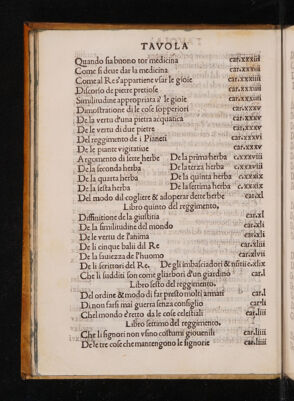 TAVOLA
Quando sia buono tor medicina car.xxxiii
Come si deue dar la medicina car.xxxiii
Come al Re s'appartiene vsar le gioie car.xxxiiii
Discorso de pietre pretiose car.xxxiiii
Similitudine appropriata a' le gioie car.xxxiiii
Dimostratione di le cose soperiori car.xxxv
De la vertu d'una pietra acquatica car.xxxv
De le vertu di due pietre car.xxxv
Del reggimento de i Pianeti car.xxxv
De le piante vigitatiue car.xxxvi
Argomento di sette herbe De la prima herba c.xxxviii
De la seconda herba De la terza herba c.xxxviii
De la quarta herba De la quinta herba c.xxxix
De la sesta herba De la settima herba c.xxxix
Del modo dil cogliere & adoperar dette herbe car.xl
Libro quinto del reggimento.
Diffinitione de la giustitia car.xl
De la similitudine del mondo car.xli
De le vertu de l'anima car.xli
De li cinque balii dil Re car.xliii
De la sauiezza de l'huomo car.xlvii
De li scrittori del Re. De gli imbasciadori & nūtii c.xlix
Che li sudditi son come gliarbori d'un giardino car.l
Libro sesto del reggimento.
Del ordine & modo di far presto molti armati car.l
Di non farsi mai guerra senza consiglio car.li
Chel mondo è retto da le cose celestiali car.liii
Libro settimo del reggimento.
Che li signori non vsino costumi giouenili car.liiii
De le tre cose che mantengono le signorie car.liiii